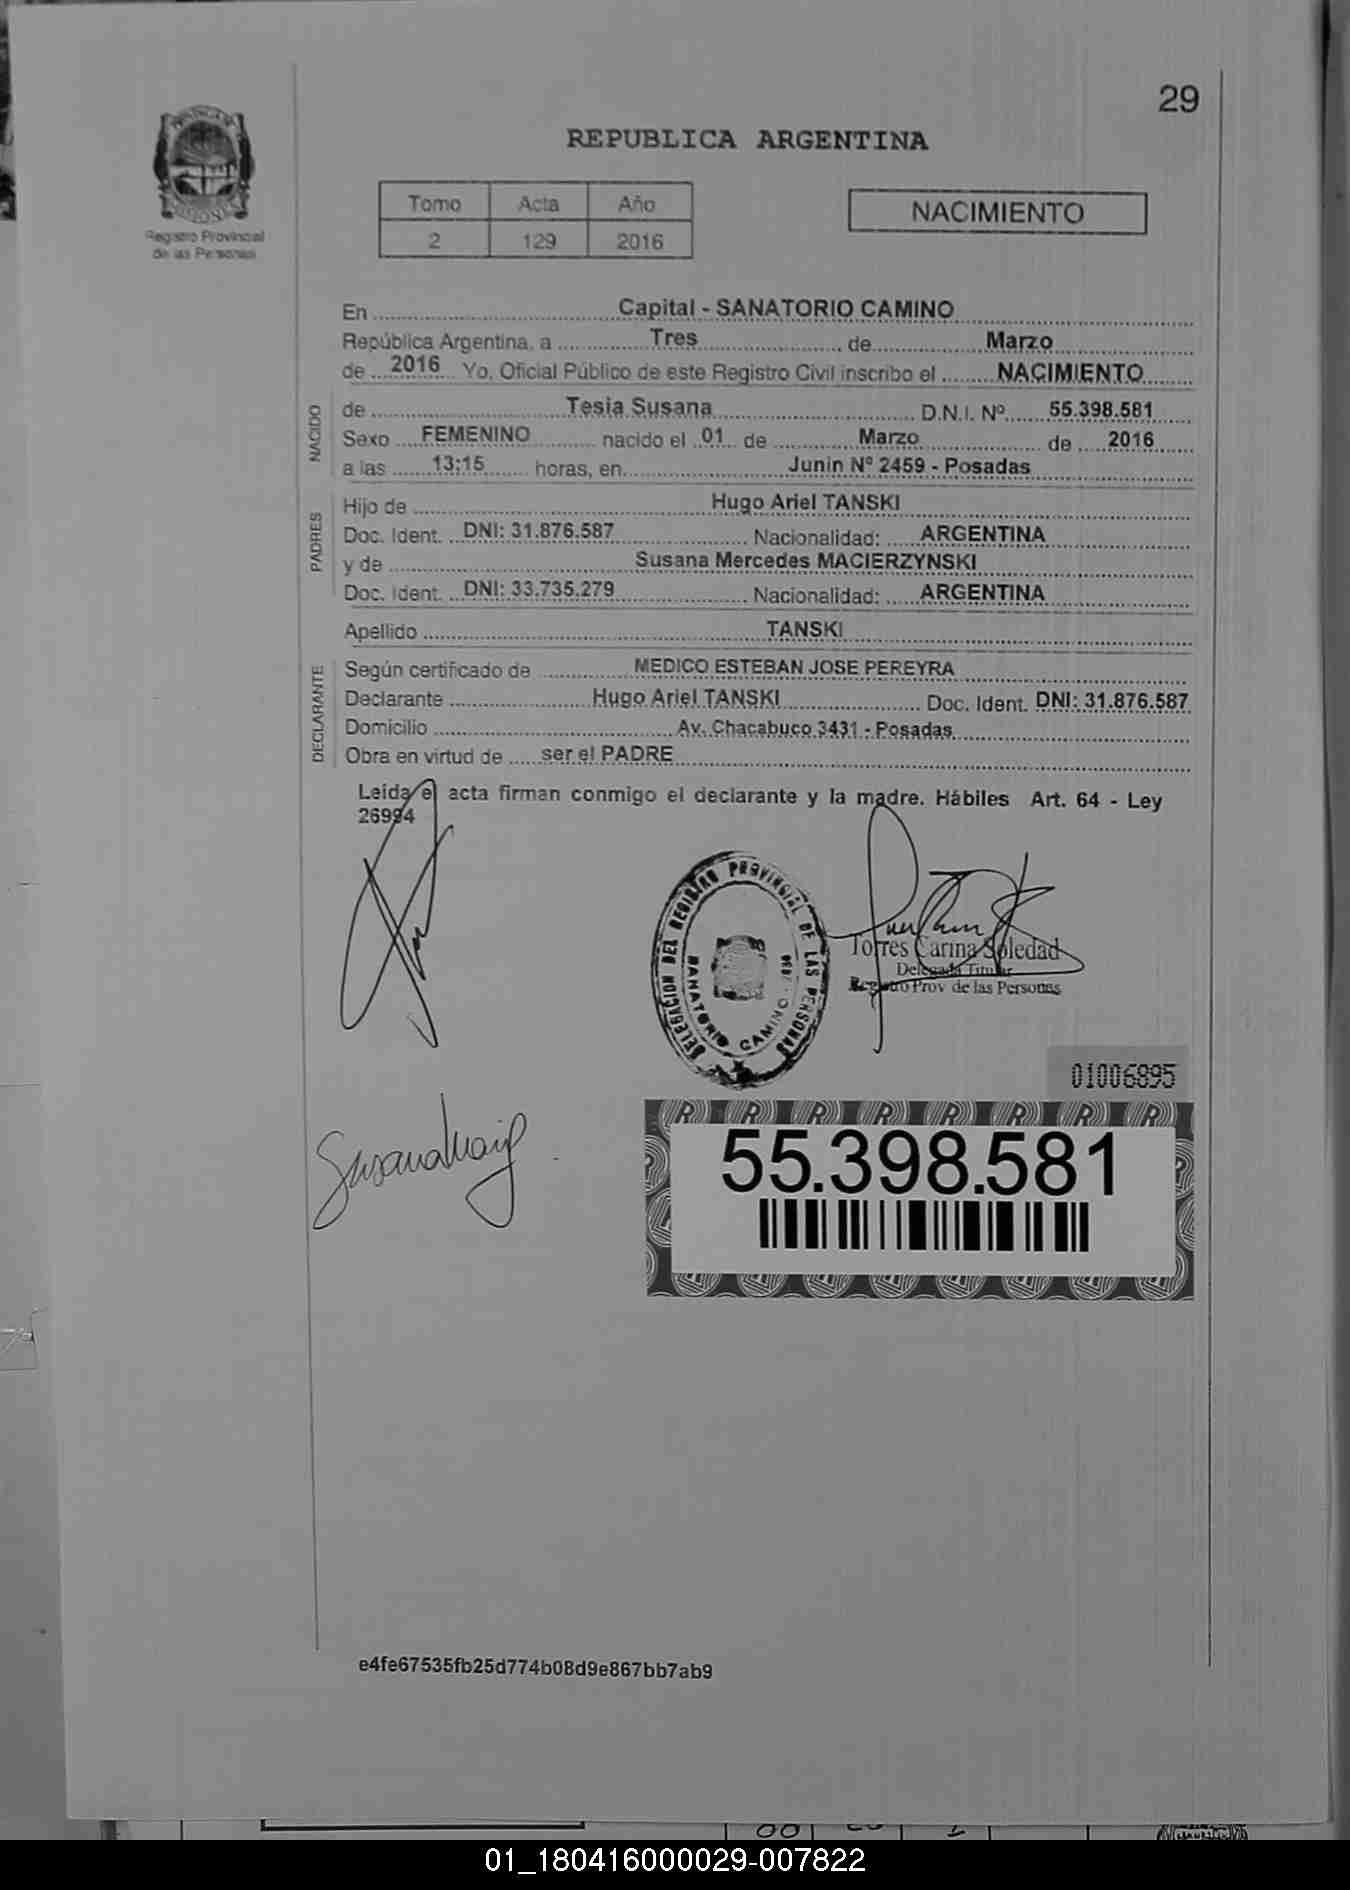 29
REPUBLICA ARGENTINA
Registro Provincial
de las Personas
Tomo Acta Año
2 129 2016
NACIMIENTO
En Capital - SANATORIO CAMINO
República Argentina, a Tres de Marzo
de 2016 Yo, Oficial Público de este Registro Civil inscribo el NACIMIENTO
NACIDO
de Tesia Susana D.N.I. Nº 55.398.581
Sexo FEMENINO nacido el 01 de Marzo de 2016
a las 13:15 horas, en Junin Nº 2459 - Posadas
PADRES
Hijo de Hugo Ariel TANSKI
Doc. Ident. DNI: 31.876.587 Nacionalidad: ARGENTINA
y de Susana Mercedes MACIERZYNSKI
Doc. Ident. DNI: 33.735.279 Nacionalidad: ARGENTINA
Apellido TANSKI
DECLARANTE
Según certificado de MEDICO ESTEBAN JOSE PEREYRA
Declarante Hugo Ariel TANSKI Doc. Ident. DNI: 31.876.587
Domicilio Av. Chacabuco 3431 - Posadas
Obra en virtud de ser el PADRE
Leida el acta firman conmigo el declarante y la madre. Hábiles Art. 64 - Ley
26994
DELEGACION DEL REGISTRO PROVINCIAL DE LAS PERSONAS
SANATORIO CAMINO
Torres Carina Soledad
Delegada Titular
Registro Prov de las Personas
01006895
55.398.581
e4fe67535fb25d774b08d9e867bb7ab9
01_180416000029-007822